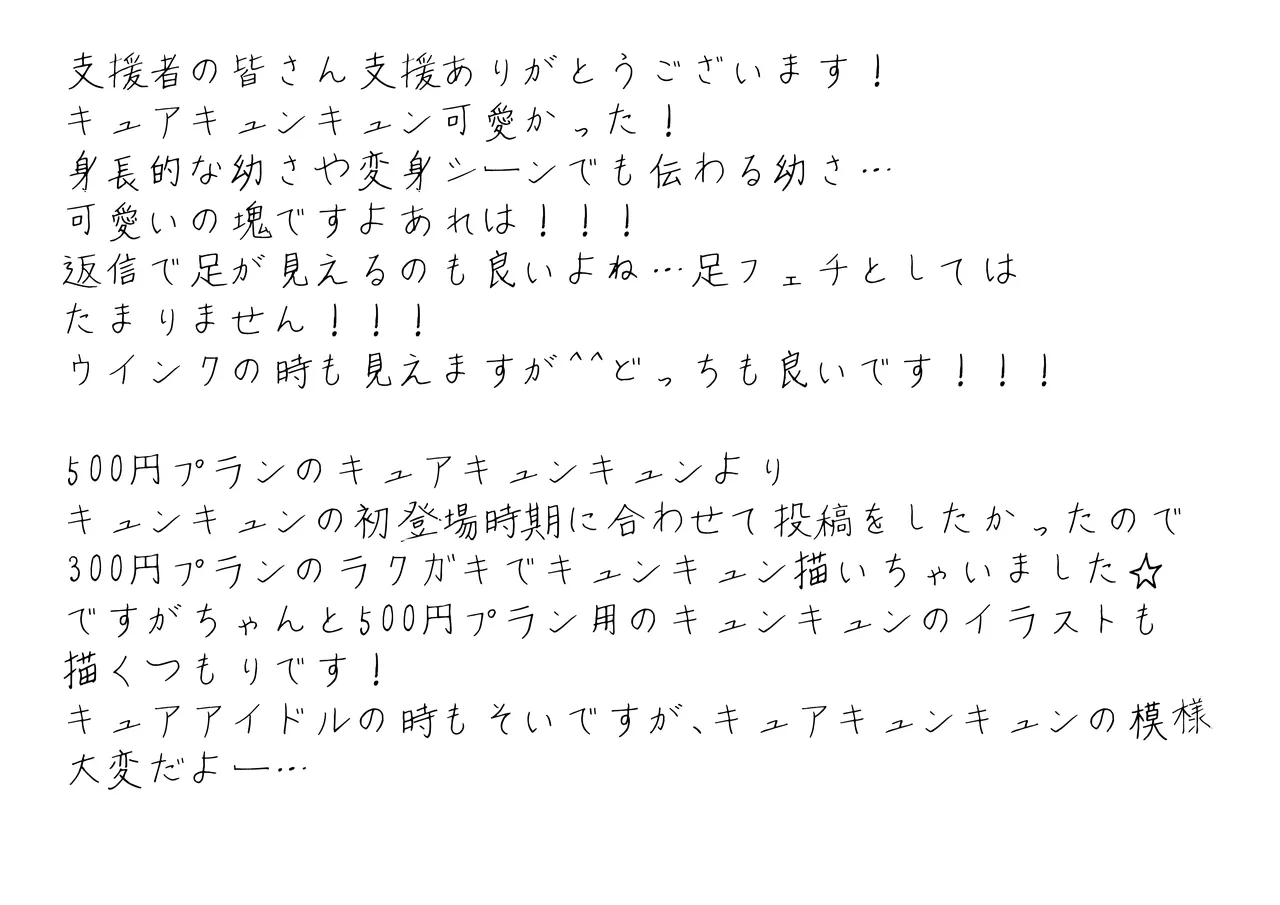 支援者の皆さん支援ありがとうございます！
キュアキュンキュン可愛かった！
身長的な幼さや変身シーンでも伝わる幼さ…
可愛いの塊ですよあれは！！！
返信で足が見えるのも良いよね…足フェチとしては
たまりません！！！
ウインクの時も見えますが^^どっちも良いです！！！
500円プランのキュアキュンキュンより
キュンキュンの初登場時期に合わせて投稿をしたかったので
300円プランのラクガキでキュンキュン描いちゃいました☆
ですがちゃんと500円プラン用のキュンキュンのイラストも
描くつもりです！
キュアアイドルの時もそいですが、キュアキュンキュンの模様
大変だよー…